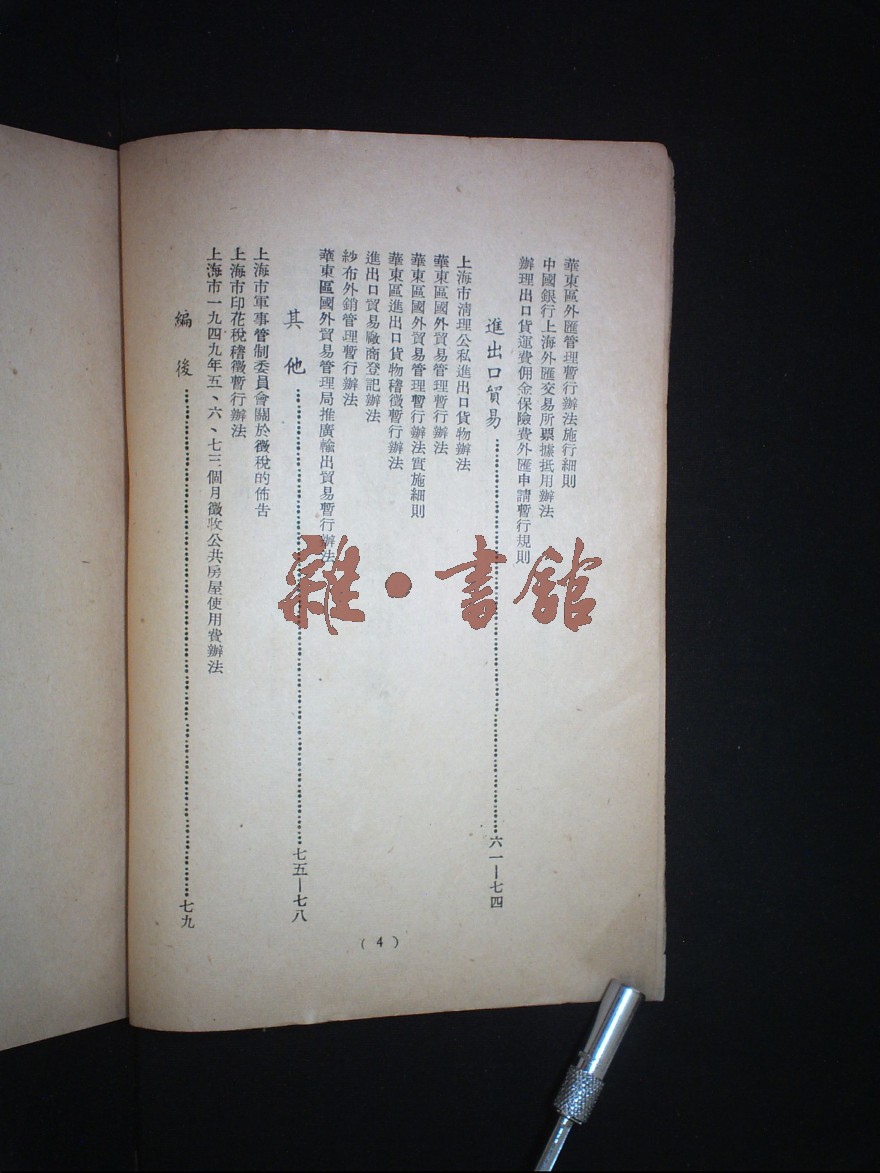 華東區外匯管理暫行辦法施行細則
中國銀行上海外匯交易所票據抵用辦法
辦理出口貨運費佣金保險費外匯申請暫行規則
進出口貿易……六一—七四
上海市清理公私進出口貨物辦法
華東區國外貿易管理暫行辦法
華東區國外貿易管理暫行辦法實施細則
華東區進出口貨物稽徵暫行辦法
進出口貿易廠商登記辦法
紗布外銷管理暫行辦法
華東區國外貿易管理局推廣輸出貿易暫行辦法
其他……七五—七八
上海市軍事管制委員會關於徵税的佈告
上海市印花稅稽徵暫行辦法
上海市一九四九年五、六、七三個月徵收公共房屋使用費辦法
編後……七九
(4)
雜·書館